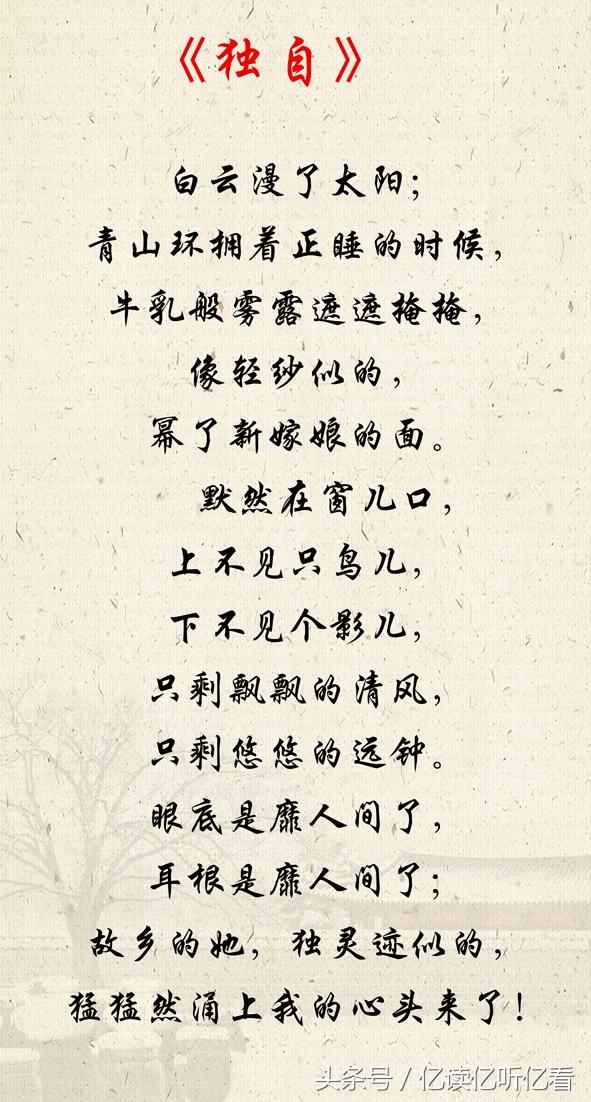 《独自》
白云漫了太阳；
青山环拥着正睡的时候，
牛乳般雾露遮遮掩掩，
像轻纱似的，
幂了新嫁娘的面。
默然在窗儿口，
上不见只鸟儿，
下不见个影儿，
只剩飘飘的清风，
只剩悠悠的远钟。
眼底是靡人间了，
耳根是靡人间了；
故乡的她，独灵迹似的，
猛猛然涌上我的心头来了！
头条号 / 亿读亿听亿看